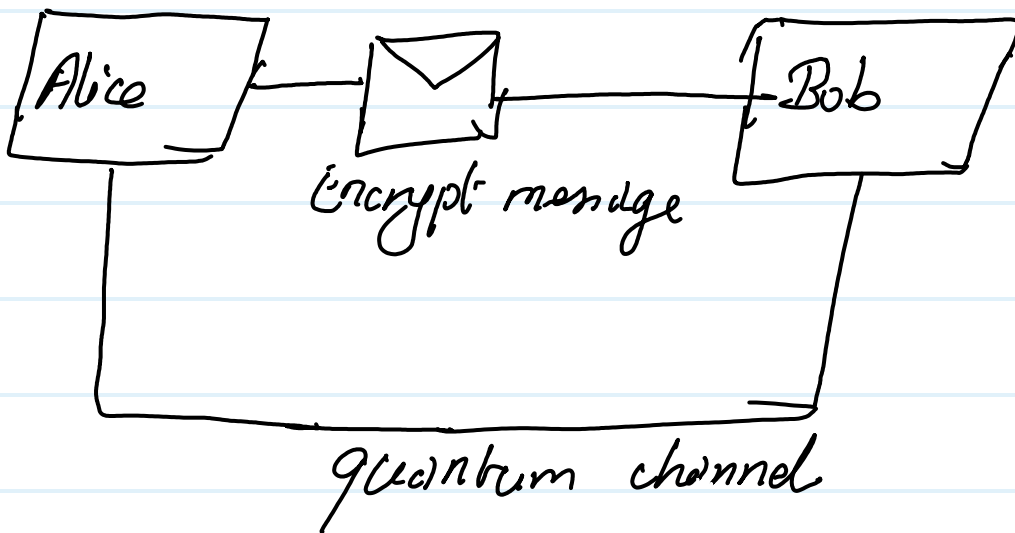 Alice
Bob
Encrypt message
quantum channel